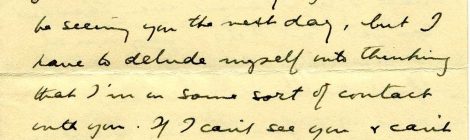 be seeing you the next day, but I
have to delude myself into thinking
that I'm in some sort of contact
with you. If I can't see you & can't